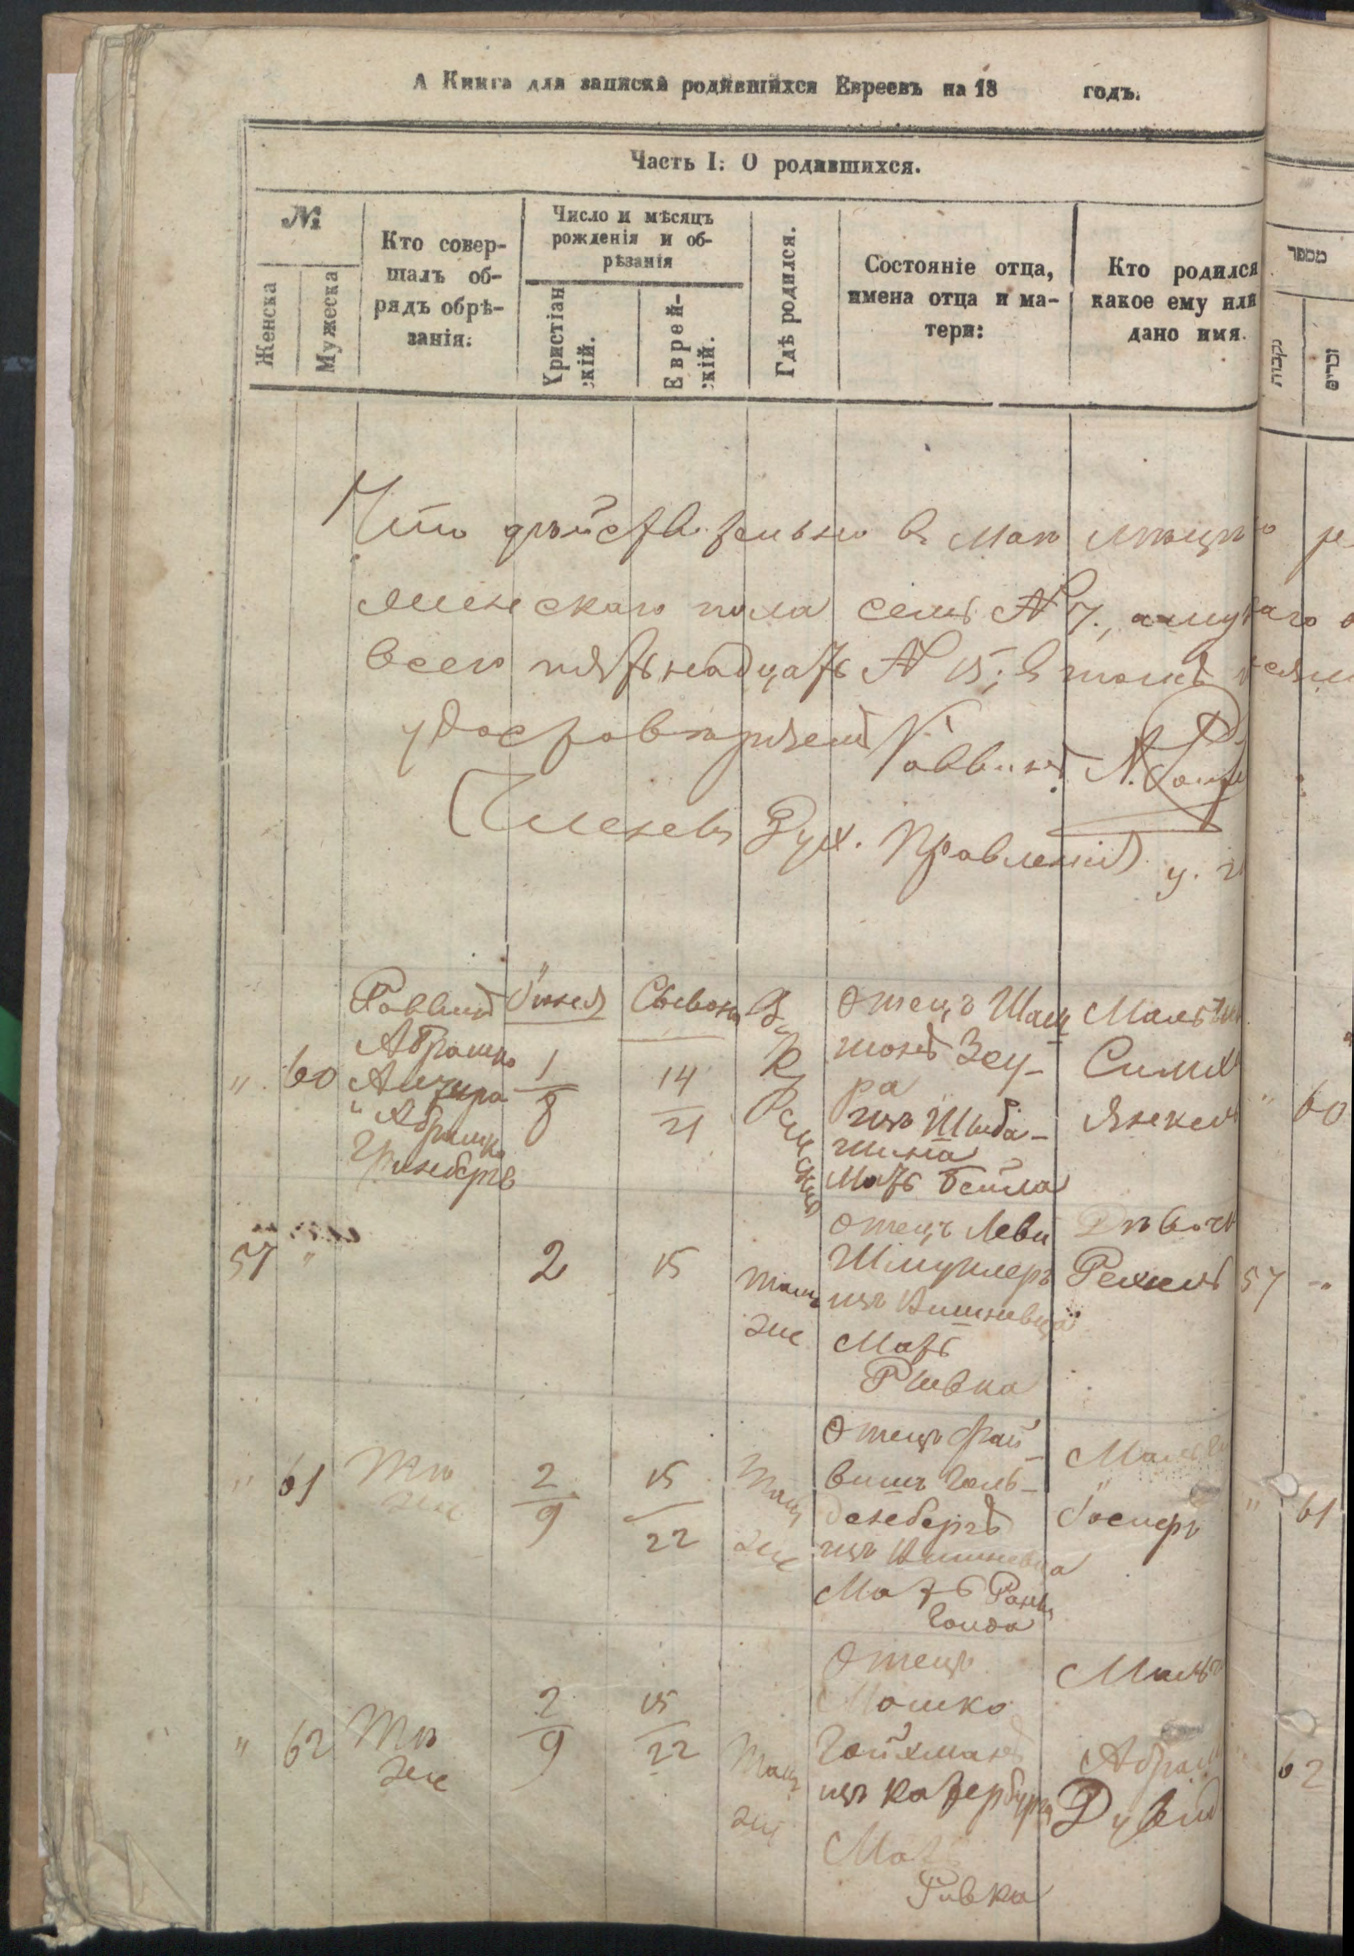 А Книга для записки родившихся Евреевъ на 18 годъ.
Часть I: О родившихся.
№
Женска
Мужеска
Кто совер-
шалъ об-
рядъ обрѣ-
занія:
Число и мѣсяцъ
рожденія и об-
рѣзанія
Христіан
скій.
Еврей-
скій.
Гдѣ родился.
Состояніе отца,
имена отца и ма-
тери:
Кто родился
какое ему или
дано имя.
מספר
נקבות
זכרים
Что действительно въ маѣ мѣсяцѣ
женскаго пола семь № 7,
всего пятьнадцать № 15; въ томъ
удостоверяемъ Раввинъ
Членъ Дух. Правленія
" 60
Раввинъ
Абрамко
"Абрамко
Гринбергъ
Іюня
1
8
Сывонъ
14
21
Отецъ Шам
шонъ Зеу-
ра
изъ Шиба-
шина
Мать Бейла
Маль
Симха
Янкель
" 60
57 "
2
15
тамъ
же
Отецъ Леви
Шмуклеръ
изъ Вишневца
Мать
Ривка
Рехель
57 "
" 61
Тотъ
же
2
9
15
22
тамъ
же
Отецъ Фай
вишъ Голь-
денбергъ
изъ Вишневца
Мать
Маль
Іосперъ
" 61
" 62
Тотъ
же
2
9
15
22
тамъ
же
Отецъ
Мошко
Гойхманъ
изъ Катербурга
Мать
Ривка
Маль
Абрам
Дувид
62